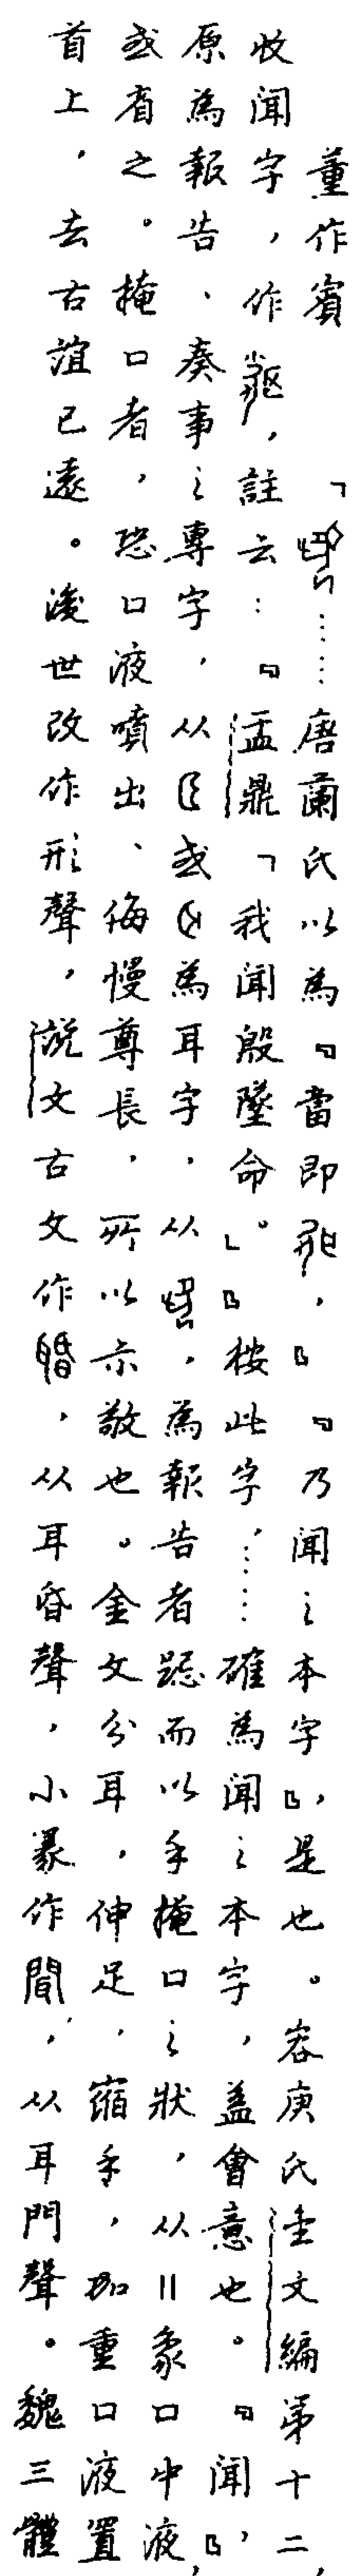 董作賓　「……唐蘭氏以為『當即，』『乃聞之本字』，是也。容庚氏金文編第十二，
收聞字，作，註云：『盂鼎「我聞殷墜命。」』按此字，……確為聞之本字，蓋會意也。『聞』，
原為報告、奏事之專字，从或為耳字，从，為報告者跽而以手掩口之狀，从〢象口中液，
或省之。掩口者，恐口液噴出、侮慢尊長，所以示敬也。金文分耳，伸足，縮手，加重口液置
首上，去古誼已遠。後世改作形聲，說文古文作䎽，从耳昏聲，小篆作聞，从耳門聲。魏三體